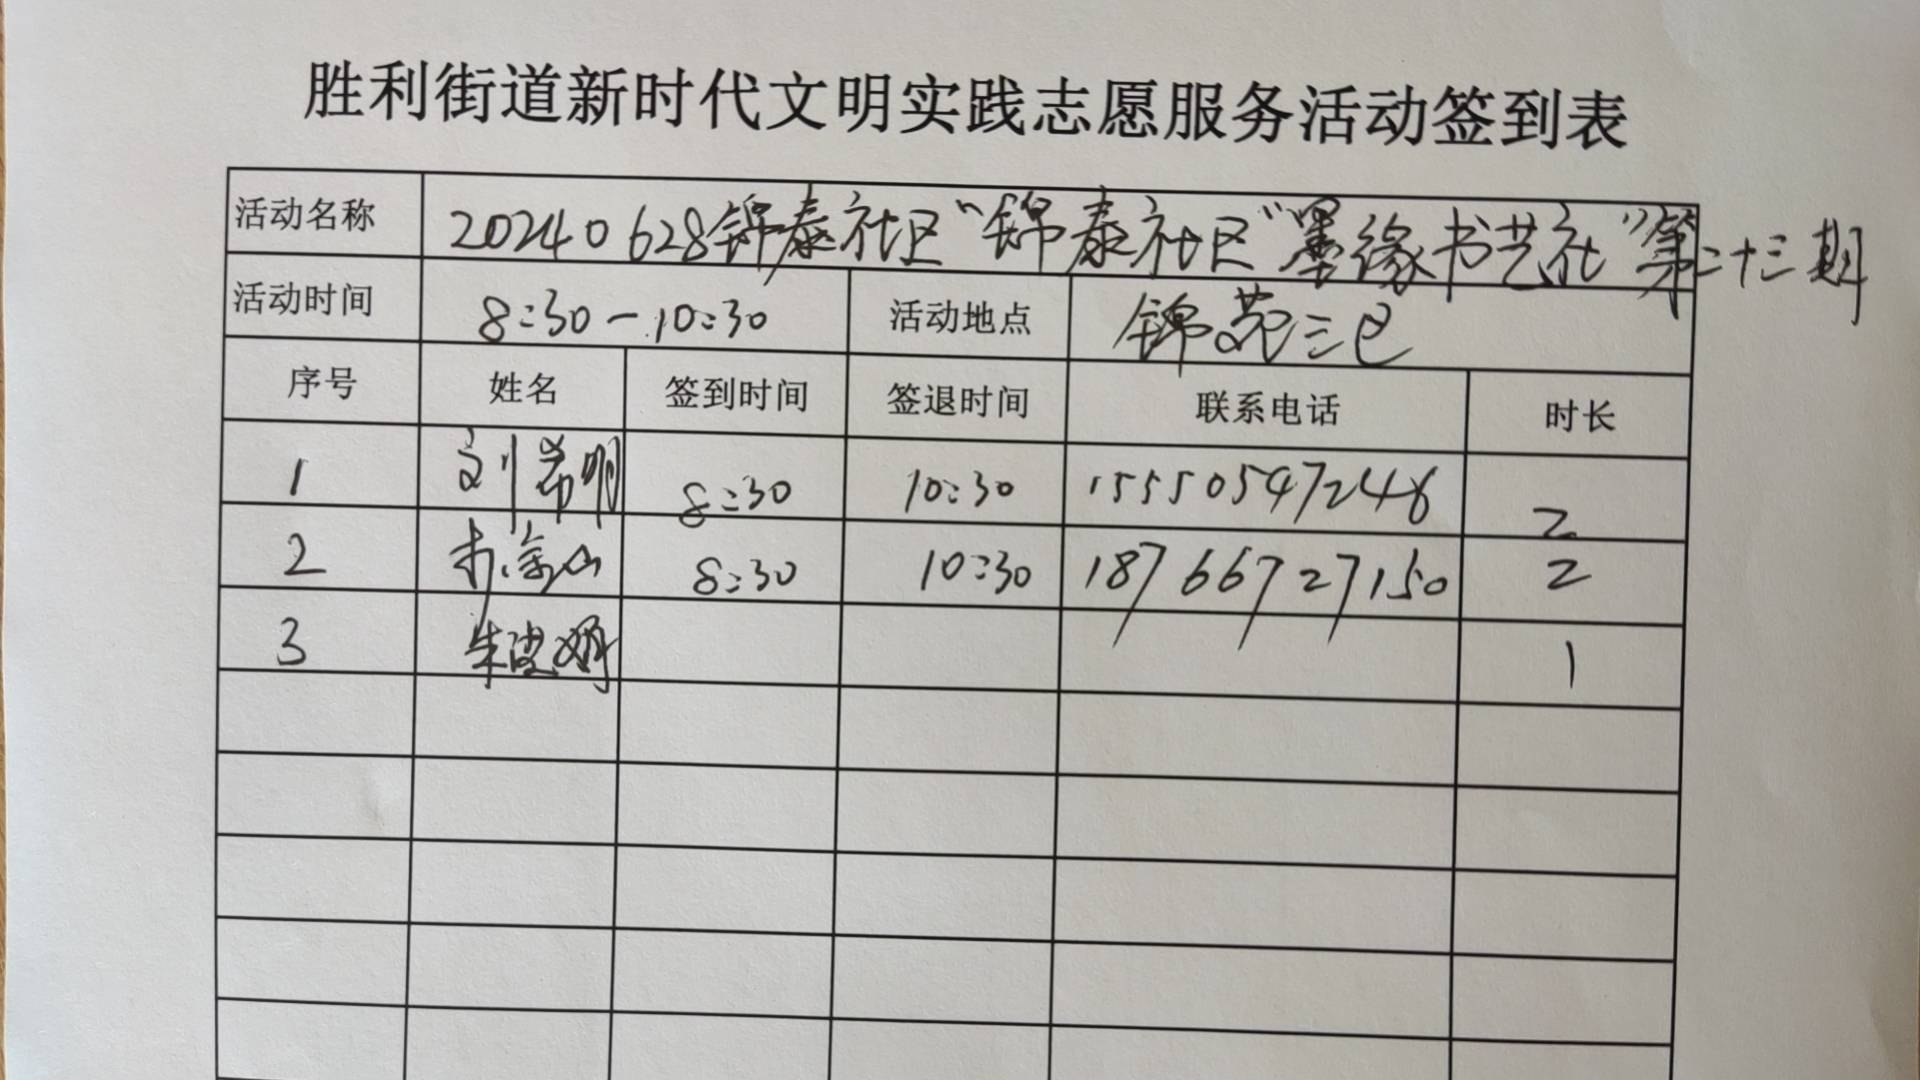 胜利街道新时代文明实践志愿服务活动签到表
活动名称 20240628锦泰社区“锦泰社区“墨缘书艺社”第二十三期
活动时间 8:30-10:30 活动地点 锦苑三区
序号 姓名 签到时间 签退时间 联系电话 时长
1 刘希明 8:30 10:30 15550547246 2
2 8:30 10:30 18766727150 2
3 朱 1